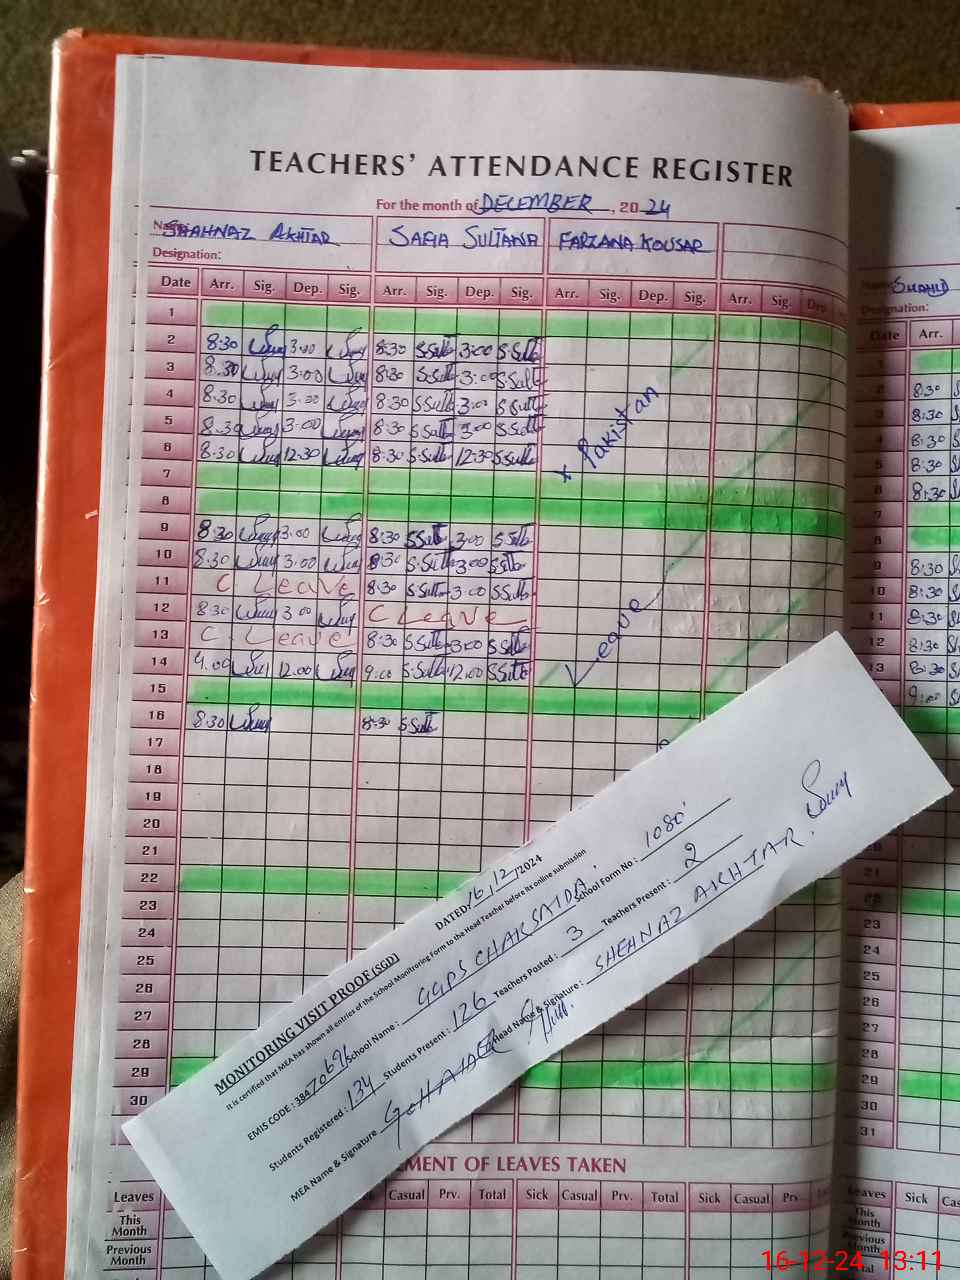 TEACHERS' ATTENDANCE REGISTER
For the month of DECEMBER, 2024
Name SHAHNAZ AKHTAR SAFIA SULTANA FARZANA KOUSAR
Designation:
Date Arr. Sig. Dep. Sig. Arr. Sig. Dep. Sig. Arr. Sig. Dep. Sig. Arr. Sig. Dep
1
2 8:30 3:00 8:30 S.Sult 3:00 S.Sult
3 8.30 3:00 8:30 S.Sult 3:00 S.Sult
4 8.30 3.00 8:30 S.Sult 3:00 S.Sult
5 8.30 3.00 8:30 S.Sult 3:00 S.Sult
6 8.30 12.30 8:30 S.Sult 12:30 S.Sult
x Pakistan
7
8
9 8:30 3.00 8:30 S.Sult 3:00 S.Sult
10 8.30 3.00 8:30 S.Sult 3:00 S.Sult
11 C Leave 8:30 S.Sult 3:00 S.Sult
12 8:30 3.00 C Leave
13 C. Leave 8:30 S.Sult 3:00 S.Sult
Leave
14 9.00 12.00 9:00 S.Sult 12:00 S.Sult
15
16 8:30 8:30 S.Sult
17
18
19
20
21
22
23
24
25
26
27
28
29
30
MONITORING VISIT PROOF (SGD) DATED 16,12,2024
It is certified that MEA has shown all entries of the School Monitroring Form to the Head Teacher before its online submission
EMIS CODE : 38470696 School Name : GGPS CHAK SAIDA. School Form No : 1080
Students Registered : 134 Students Present : 126 Teachers Posted : 3 Teachers Present : 2
MEA Name & Signature GOHAHER Head Name & Signature : SHEHNAZ AKHTAR.
EMENT OF LEAVES TAKEN
Leaves Casual Prv. Total Sick Casual Prv. Total Sick Casual Prv.
This Month
Previous Month
SHAHID
Designation:
Date Arr.
8:30
8:30
4 8:30
5 8:30
6 8:30
7
8
9 8:30
10 8:30
11 8:30
12 8:30
13 8:30
9:00
21
22
23
24
25
26
27
28
29
30
31
Leaves Sick Cas
This Month
Previous Month
16-12-24, 13:11